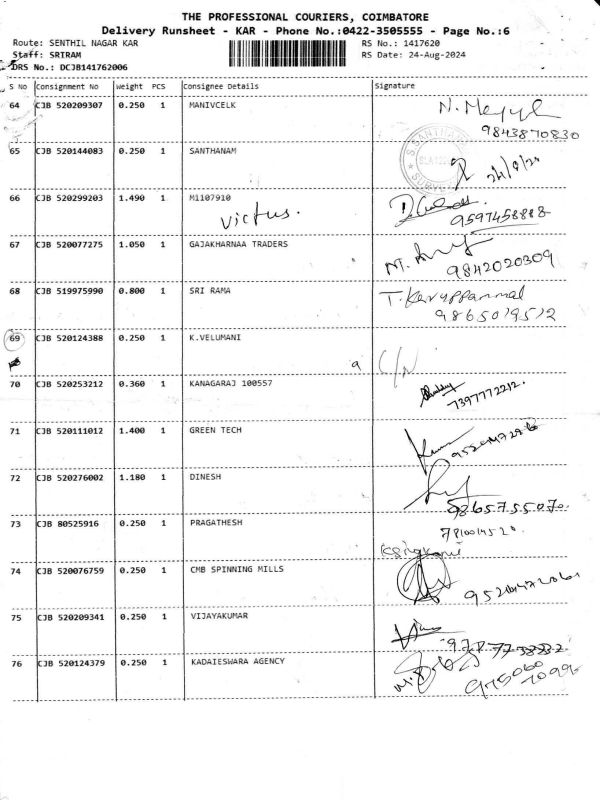 THE PROFESSIONAL COURIERS, COIMBATORE
Delivery Runsheet - KAR - Phone No.:0422-3505555 - Page No.:6
Route: SENTHIL NAGAR KAR RS No.: 1417620
Staff: SRIRAM RS Date: 24-Aug-2024
DRS No.: DCJB141762006
S No Consignment No Weight PCS Consignee Details Signature
64 CJB 520209307 0.250 1 MANIVCELK
9843870830
65 CJB 520144083 0.250 1 SANTHANAM
24/8/24
66 CJB 520299203 1.490 1 M1107910
Victus. 9597458888
67 CJB 520077275 1.050 1 GAJAKHARNAA TRADERS
9842020309
68 CJB 519975990 0.800 1 SRI RAMA T. Karuppammal
9865019512
69 CJB 520124388 0.250 1 K.VELUMANI
C/N
70 CJB 520253212 0.360 1 KANAGARAJ 100557
7397772212.
71 CJB 520111012 1.400 1 GREEN TECH
72 CJB 520276002 1.180 1 DINESH
9865755070.
73 CJB 80525916 0.250 1 PRAGATHESH
74 CJB 520076759 0.250 1 CMB SPINNING MILLS
75 CJB 520209341 0.250 1 VIJAYAKUMAR
76 CJB 520124379 0.250 1 KADAIESWARA AGENCY
975060
7099